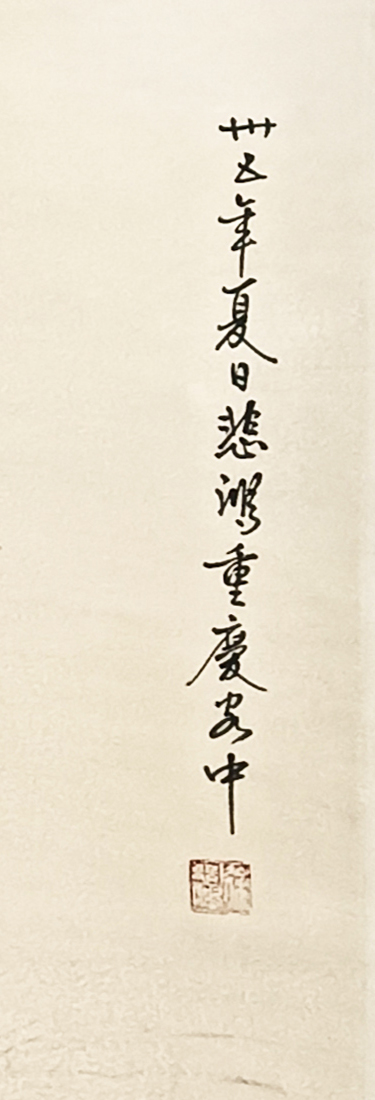 卅五年夏日悲鴻重慶客中